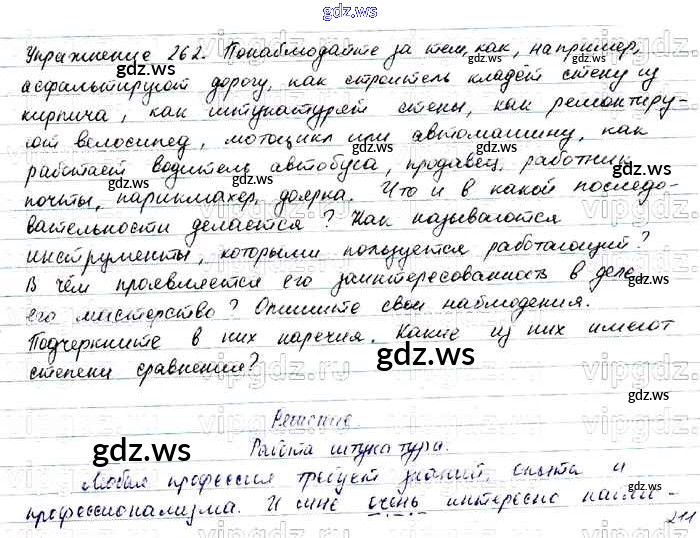 gdz.ws
Упражнение 262. Понаблюдайте за тем, как, например,
асфальтируют дорогу, как строитель кладёт стену из
кирпича, как штукатурят стены, как ремонтиру-
ют велосипед, мотоцикл или автомашину, как
работает водитель автобуса, продавец, работник
почты, парикмахер, доярка. Что и в какой последо-
вательности делается? Как называются
инструменты, которыми пользуется работающий?
В чём проявляется его заинтересованность в деле,
его мастерство? Опишите свои наблюдения.
Подчеркните в них наречия. Какие из них имеют
степени сравнения?
gdz.ws
Решение.
gdz.ws
Работа штукатура.
Любая профессия требует знаний, опыта и
профессионализма. И мне очень интересно наблю-
211